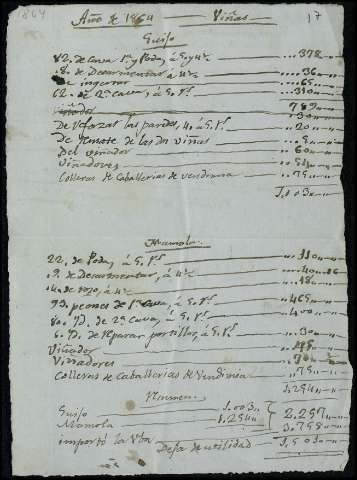 1864
Año de 1864 Viñas 17
Guijo
82, de Cava 1ª y Poda, á 378
8. de Desarmentar, á 4 r 36
de ingerir 65
62. de 2ª Cava, á 5. rs 310
789
30
De reforzar las paredes, 4, á 5. rs 20
De remate de las dos viñas
Del viñador 60
Viñadores
Colleras de Caballerias de vendimia 75
1,003
Mamola
22. de Poda, á 5. rs 110
9. de Desarmentar, á 4 r
á 4 r 18
93. peones de 1ª Cava, á 5. rs 465
80. Yd. de 2ª Cava, á 5. rs 400
6. Yd. de reparar portillos, á 5. rs 30
Viñador 45
Viñadores
Colleras de Caballerias de Vendimia 75
1,254
Resumen
Guijo 1.003
Mamola 1.254 2,257
importó la Uva 3,758
Deja de utilidad 1,503